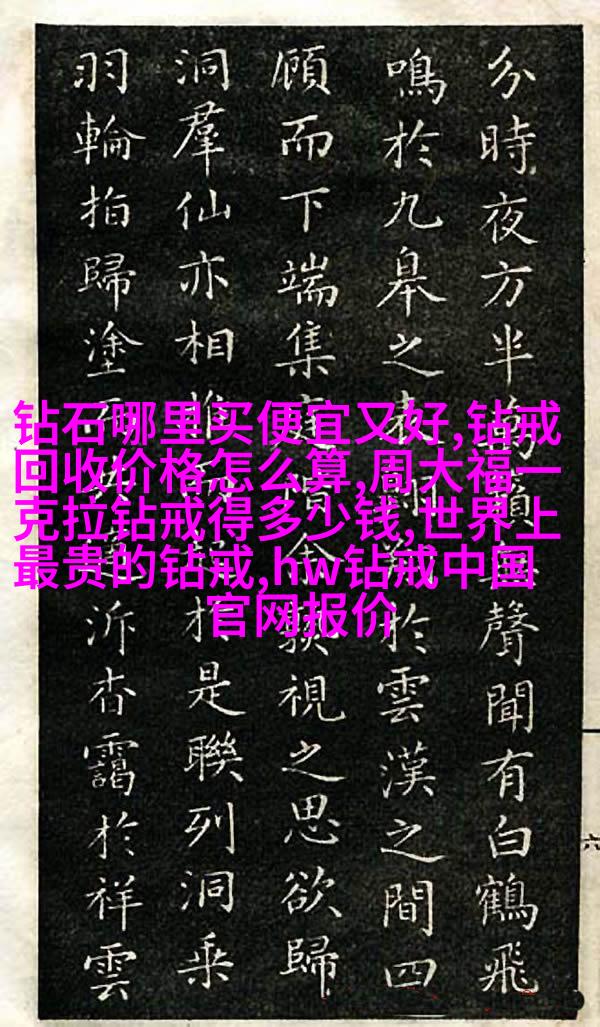 分時夜方半萬籟聲聞有白鶴飛
鳴於九皋之表於雲漢之間四
顧而下端集余駭視之思欲歸
洞羣仙亦相於是聯列洞乗
羽輪指歸塗泝杳靄於祥雲
六
钻石哪里买便宜又好,钻戒
回收价格怎么算,周大福一
克拉钻戒得多少钱,世界上
最贵的钻戒,hw钻戒中国
官网报价